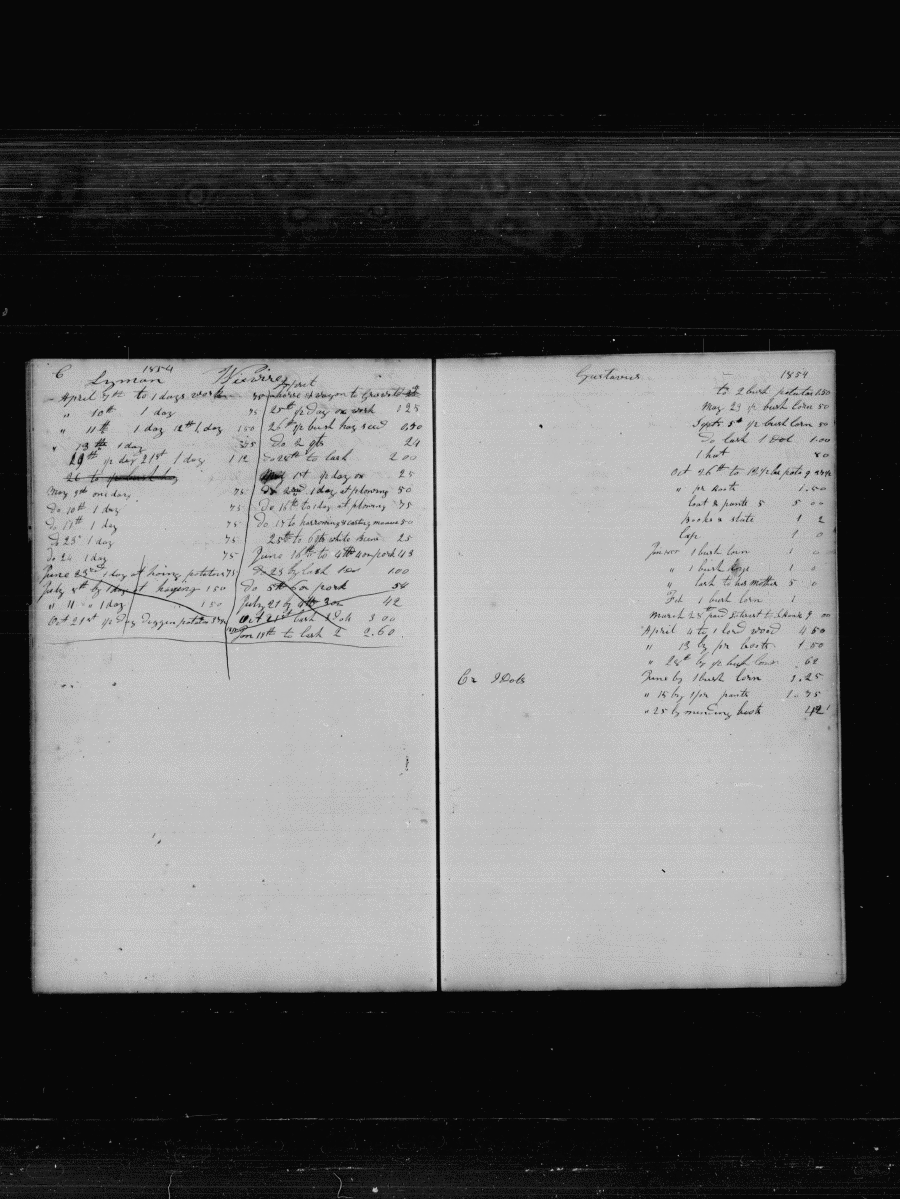 C 1854
Lyman
April 9th to 1 days work 75
" 10th 1 day 75
" 11th 1 day 12th 1 day 150
" 13th 1 day
20th 1/2 day 21st 1 day 112
May 9th one day 75
Do 10th 1 day 75
Do 11th 1 day 75
Do 23 1 day 75
Do 24 1 day 75
June 23rd 1 day at hoing potatoes 75
July 8th by 1 day at haying 150
" 11 " 1 day 150
Oct 21st 1/2 day diggen potatoes
horse & wagon to
25th 1/2 day ox work 125
26th 1/2 bush hay seed 0.50
Do 2 qts 24
Do 28th to cash 200
May 1st 1/2 day ox 25
Do 2nd 1 day at plowing 50
Do 16th to 1 day at plowing 75
Do 17 to harrowing & carting manure 50
25th to 6 qts white beans 25
June 16th to 4 lb pork 43
Do 23 by cash 100
Do 5th pork 54
July 21 by 42
Oct 21st cash 3 Dols 3 00
Jan 18th to cash 2 2.60
Gustavus 1854
to 2 bush potatoes 150
May 23 1/2 bush corn 50
Sept 5th 1/2 bush corn 50
Do cash 1 Dol 1.00
1 hat 80
Oct 26th to
" pr boots 1.50
coat & pants 5 5 00
Books & slate 1 2
Cap 1 0
Jan 1 bush corn 1 0
" 1 bush 1 0
" cash to his mother 5 0
Feb 1 bush corn 1
March 25th paid 9 00
April 4 to 1 lord wood 4 50
" 13 by pr boots 1 50
" 28th by 1/2 bush corn .62
Cr 9 Dols
June by 1 bush corn 1.25
" 15 by 1 pr pants 1.75
" 25 by mending boots